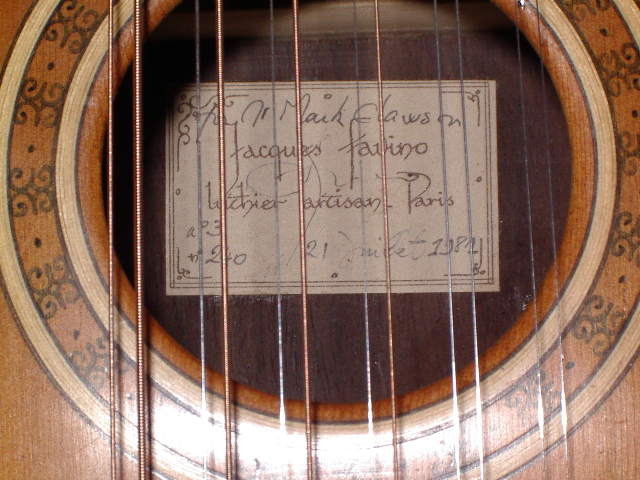 Mr Mark Clawson
Jacques Favino
luthier artisan - Paris
n° 3
n° 240 21 Juillet 1981